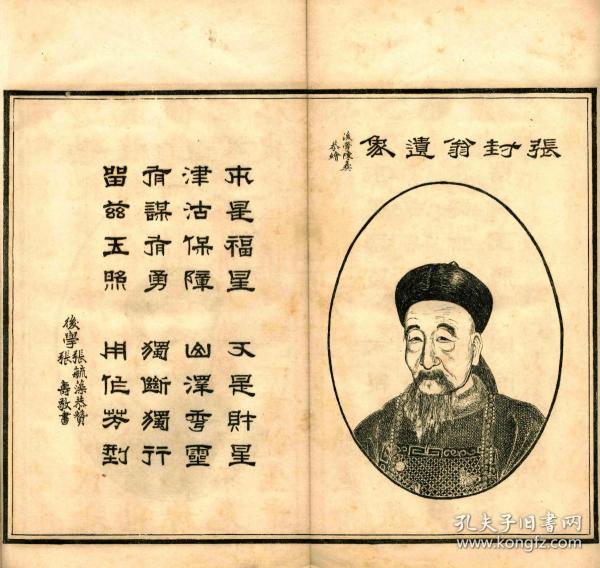 張封翁遺象
後學陳
恭繪
本是福星 又是財星
津沽保障 山澤秀靈
有謀有勇 獨斷獨行
留茲玉照 用作芳型
後學 張毓藻恭贊
張壽敬書
孔夫子旧书网
www.kongfz.com